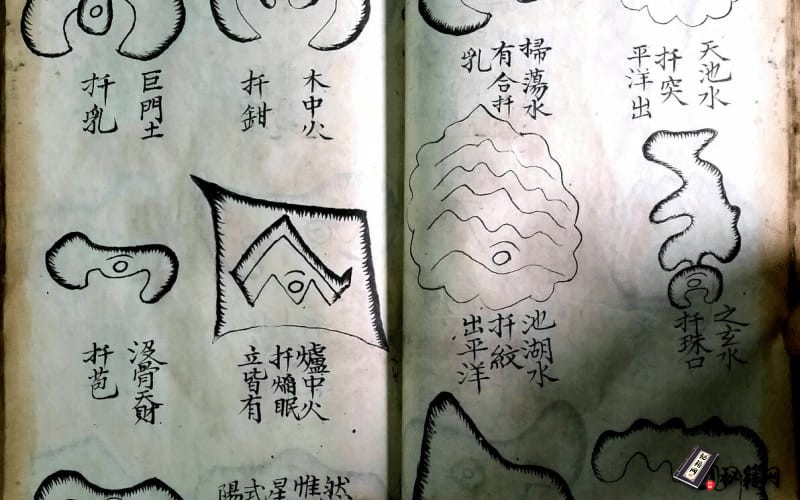 天池水
扦突
平洋出
掃蕩水
有合扦
乳
之玄水
扦珠口
池湖水
扦絞
出平洋
木中火
扦鉗
巨門土
扦乳
爐中火
扦焰眠
立皆有
没骨天財
扦苞
然
惟
星
式
陽